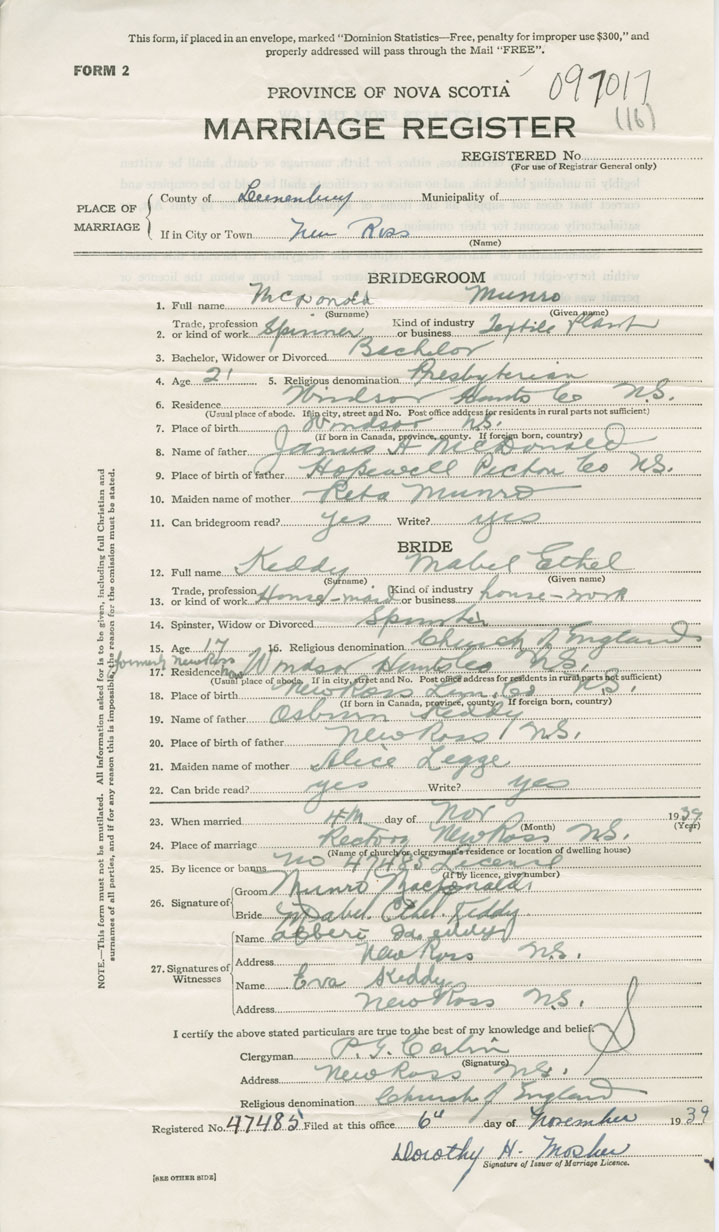 This form, if placed in an envelope, marked “Dominion Statistics—Free, penalty for improper use $300,” and
properly addressed will pass through the Mail “FREE”.
FORM 2
PROVINCE OF NOVA SCOTIA
097017
(16)
MARRIAGE REGISTER
REGISTERED No.
(For use of Registrar General only)
PLACE OF MARRIAGE
County of Lunenburg Municipality of
If in City or Town New Ross
(Name)
BRIDEGROOM
1. Full name McDonald Munro
(Surname) (Given name)
2. Trade, profession or kind of work Spinner Kind of industry or business Textile Plant
3. Bachelor, Widower or Divorced Bachelor
4. Age 21 5. Religious denomination Presbyterian
6. Residence Windsor Hants Co N.S.
(Usual place of abode. If in city, street and No. Post office address for residents in rural parts not sufficient)
7. Place of birth Windsor N.S.
(If born in Canada, province, county. If foreign born, country)
8. Name of father James A McDonald
9. Place of birth of father Hopewell Pictou Co N.S.
10. Maiden name of mother Reta Munro
11. Can bridegroom read? yes Write? yes
BRIDE
12. Full name Keddy Mabel Ethel
(Surname) (Given name)
13. Trade, profession or kind of work House-maid Kind of industry or business house-work
14. Spinster, Widow or Divorced Spinster
15. Age 17 16. Religious denomination Church of England
formerly New Ross
17. Residence now Windsor Hants Co N.S.
(Usual place of abode. If in city, street and No. Post office address for residents in rural parts not sufficient)
18. Place of birth New Ross Lun. Co N.S.
(If born in Canada, province, county. If foreign born, country)
19. Name of father Osburn Keddy
20. Place of birth of father New Ross N.S.
21. Maiden name of mother Alice Legge
22. Can bride read? yes Write? yes
23. When married 4th day of Nov 1939
(Month) (Year)
24. Place of marriage Rectory New Ross N.S.
(Name of church or clergyman's residence or location of dwelling house)
25. By licence or banns No 47485 License
(If by licence, give number)
26. Signature of
Groom Munro Macdonald
Bride Mabel Ethel Keddy
27. Signatures of Witnesses
Name Keddy
Address New Ross N.S.
Name Eva Keddy
Address New Ross N.S.
I certify the above stated particulars are true to the best of my knowledge and belief.
Clergyman P. G.
(Signature)
Address New Ross N.S.
Religious denomination Church of England
Registered No. 47485 Filed at this office 6th day of November 1939
Dorothy H. Mosher
Signature of Issuer of Marriage Licence.
[SEE OTHER SIDE]
NOTE.—This form must not be mutilated. All information asked for is to be given, including full Christian and
surnames of all parties, and if for any reason this is impossible, the reason for the omission must be stated.